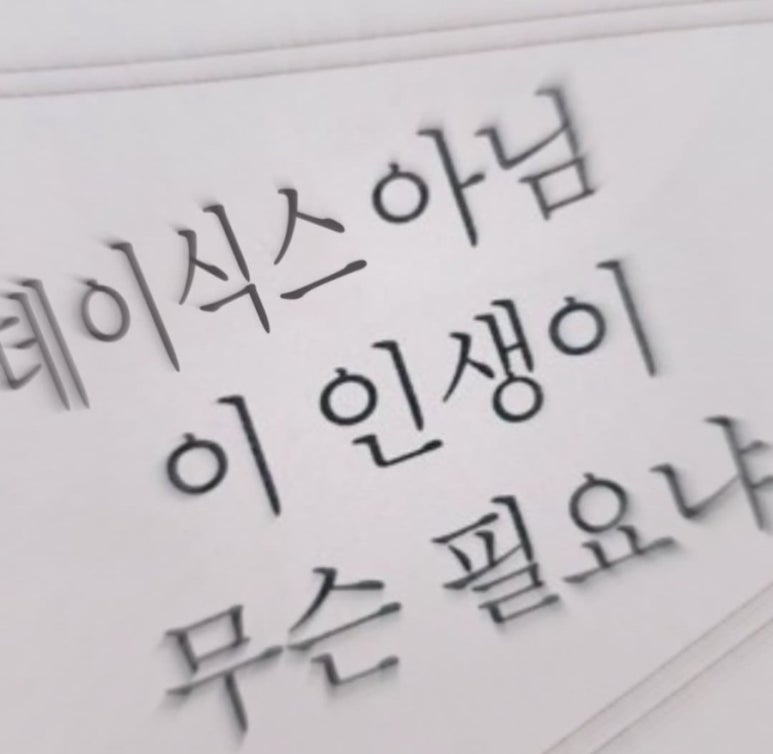 데이식스 아님
이 인생이
무슨 필요냐